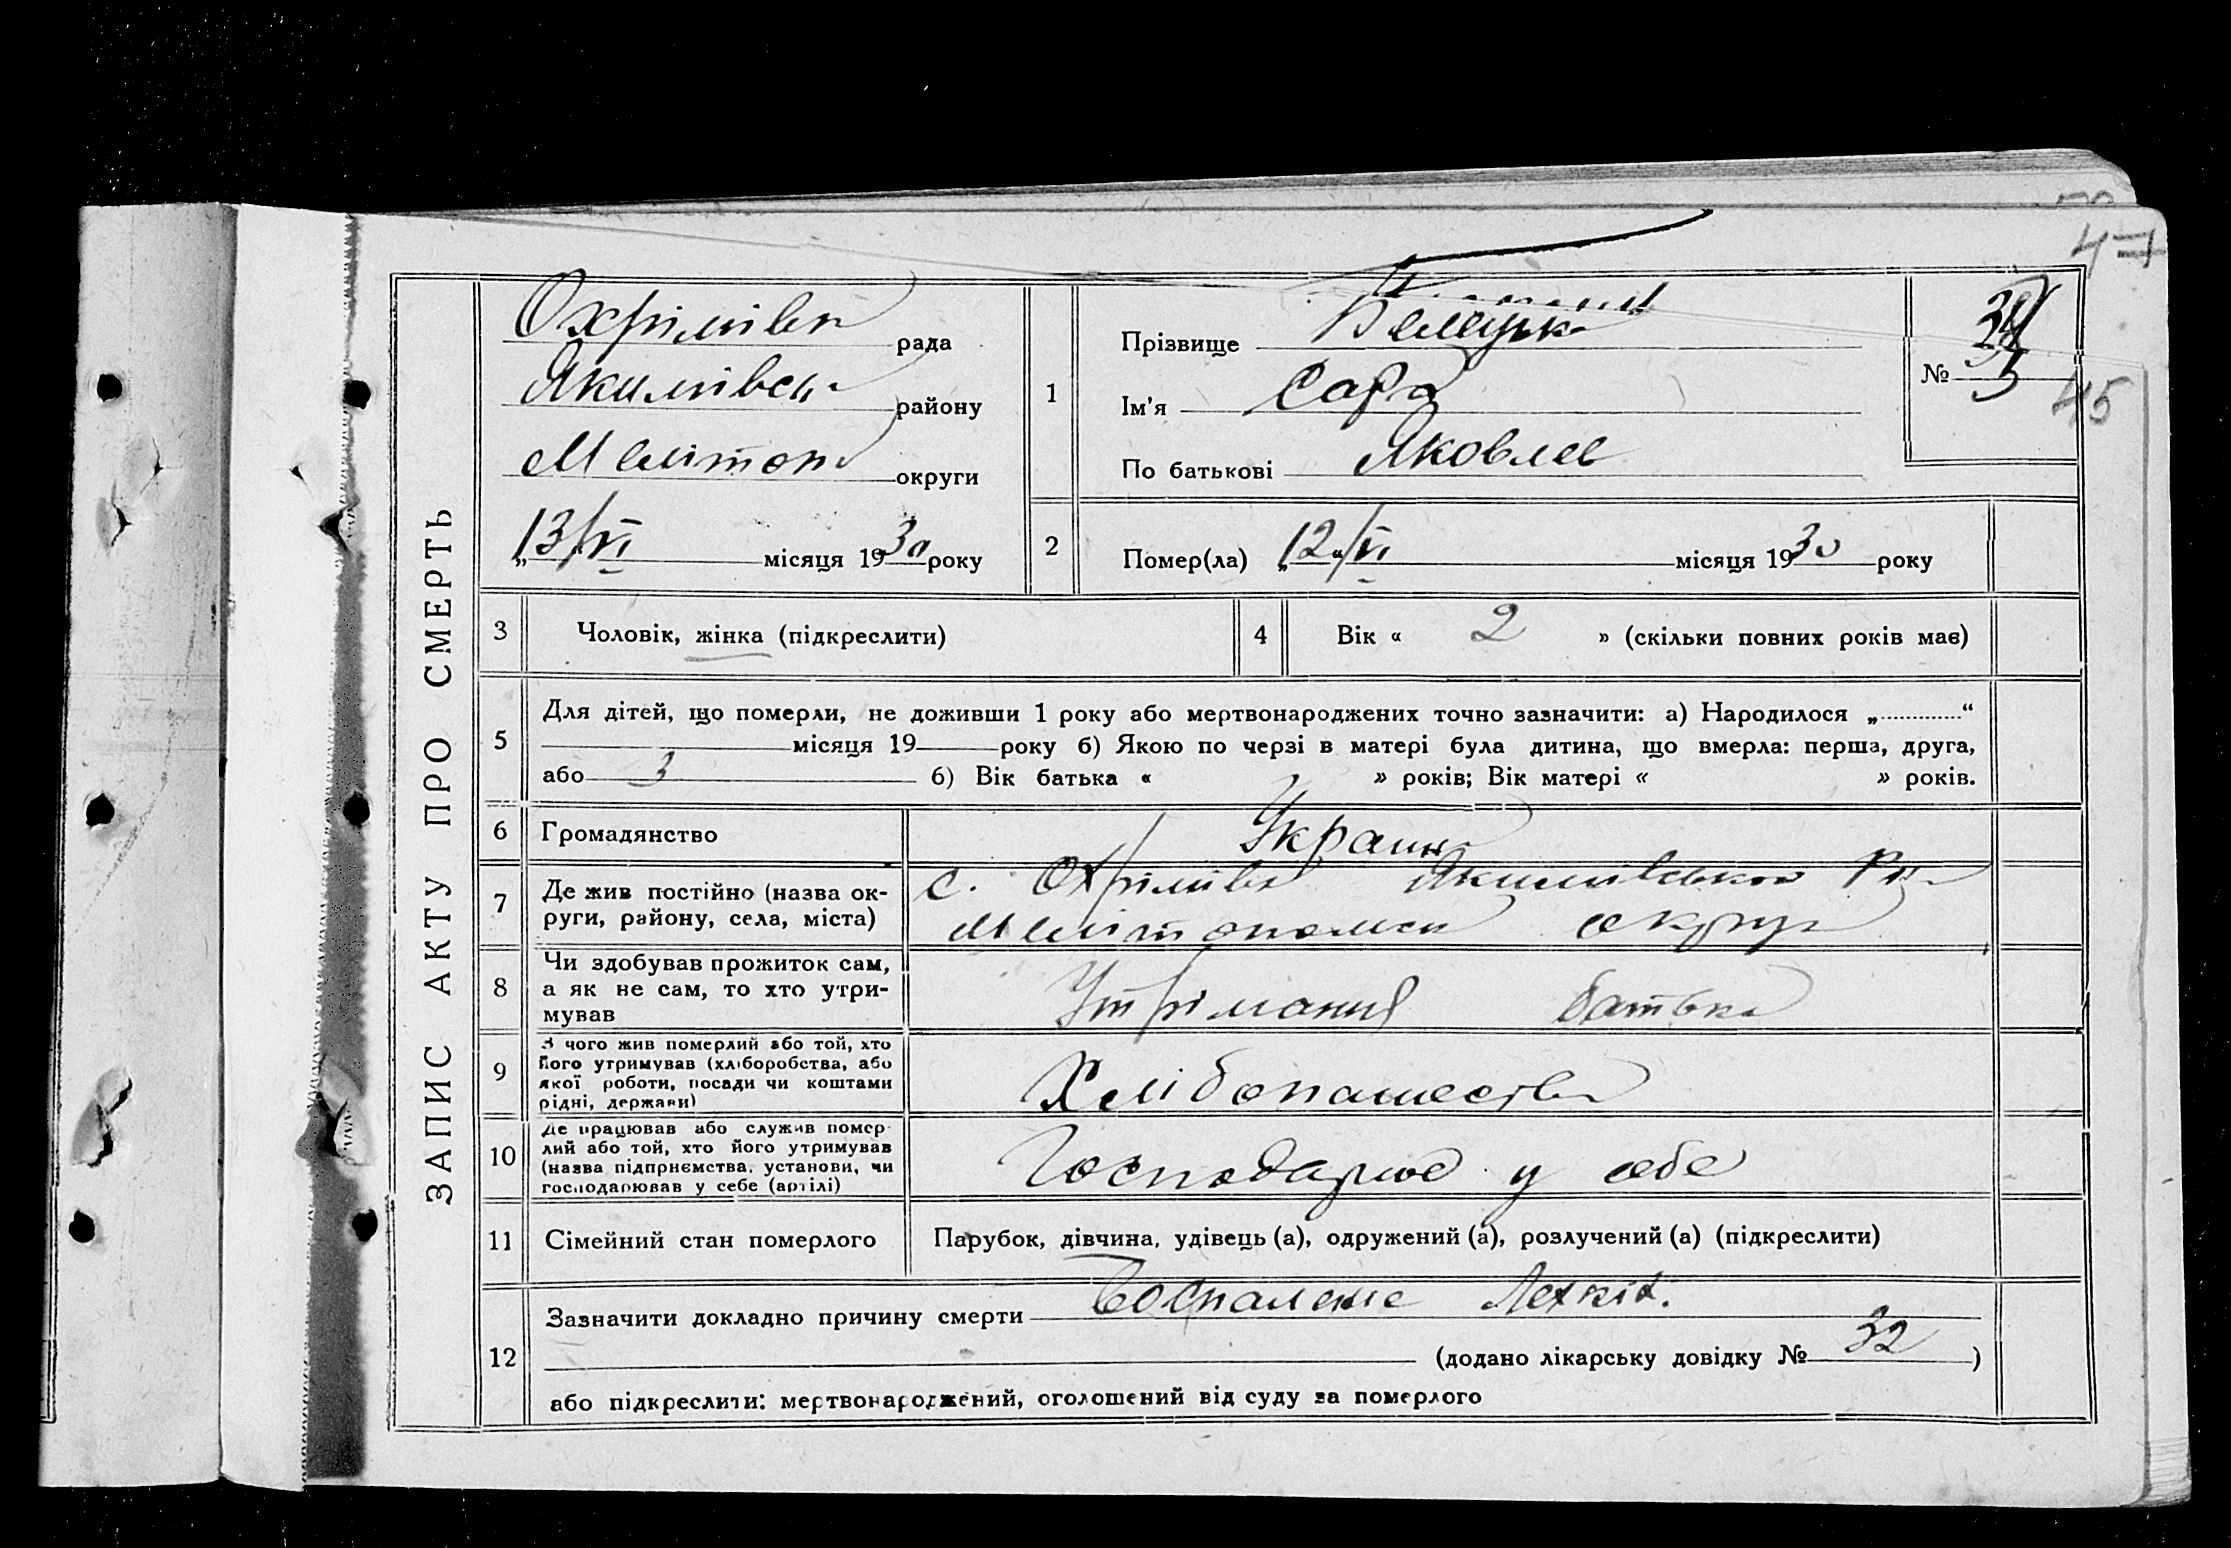 47
ЗАПИС АКТУ ПРО СМЕРТЬ
Охрімівк рада
Якимівськ району
Мелітоп округи
„13/VI місяця 1930 року
1
Прізвище Белецьк
Ім'я Сара
По батькові Яковлев
№ 35
45
2
Помер(ла) „12“/VI місяця 1930 року
3 Чоловік, жінка (підкреслити)
4 Вік « 2 » (скільки повних років має)
5 Для дітей, що померли, не доживши 1 року або мертвонароджених точно зазначити: а) Народилося „............“
місяця 19 року б) Якою по черзі в матері була дитина, що вмерла: перша, друга,
або 3 б) Вік батька « » років; Вік матері « » років.
6 Громадянство Украин
7 Де жив постійно (назва ок-
руги, району, села, міста)
с. Охрімівк Якимівського Р
Мелітопольск округи
8 Чи здобував прожиток сам,
а як не сам, то хто утри-
мував
Утріманню батька
9 З чого жив померлий або той, хто
його утримував (хліборобства, або
якої роботи, посади чи коштами
рідні, держави)
Хлібопашеств
10 Де працював або служив помер-
лий або той, хто його утримував
(назва підприємства, установи, чи
господарював у себе (артілі)
Господарює у себе
11 Сімейний стан померлого Парубок, дівчина, удівець (а), одружений (а), розлучений (а) (підкреслити)
12 Зазначити докладно причину смерти Воспалене Легкіх.
(додано лікарську довідку № 32 )
або підкреслити: мертвонароджений, оголошений від суду за померлого